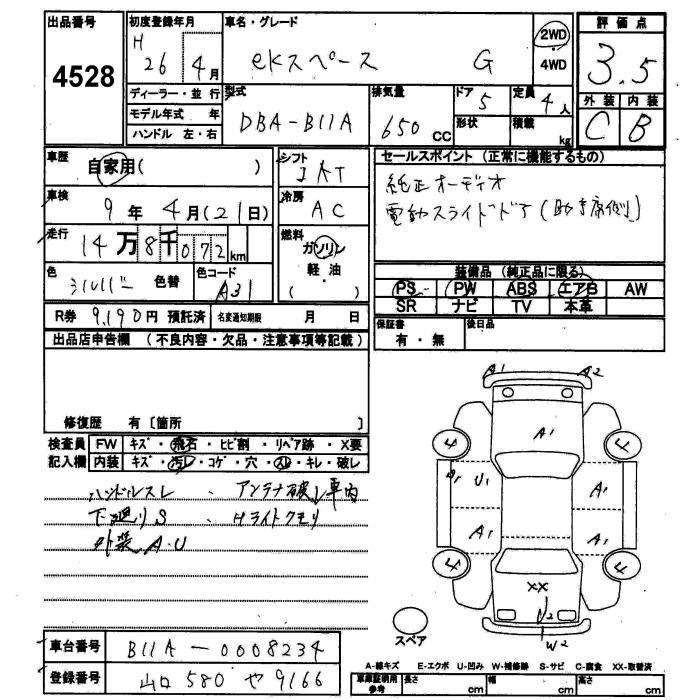 出品番号
4528
初度登録年月
H 26 年 4 月
ディーラー・並行
モデル年式 年
ハンドル 左・右
車名・グレード
eKスペース G
2WD
4WD
評価点
3.5
外装 内装
C B
型式
DBA-B11A
排気量
650 CC
ドア 5
形状
定員 4 人
積載 kg
車歴
自家用( )
車検
9 年 4 月(21日)
走行
14万8千072km
色
シルバー 色替
色コード
A31
シフト
IAT
冷房
AC
燃料
ガソリン
軽・油
( )
セールスポイント (正常に機能するもの)
純正オーディオ
電動スライドドア(助手席側)
装備品 (純正品に限る)
PS PW ABS エアB AW
SR ナビ TV 本革
R券 9,190円 預託済 名変通知期限 月 日
保証書
有・無
後日品
出品店申告欄 (不良内容・欠品・注意事項等記載)
修復歴 有 [箇所 ]
検査員 FW キズ・飛石・ヒビ割・リペア跡・X要
記入欄 内装 キズ・汚レ・コゲ・穴・スレ・キレ・破レ
ハンドルスレ・アンテナ破レ車内
下廻りS・Hライトクモリ
外装A.U
A1 A2
A1
4 4
A1 U1 A1
A1 A1
4 4
XX
U2
W2
スペア
車台番号 B11A-0008234
登録番号 山口 580 や 9166
A-線キズ E-エクボ U-凹み W-補修跡 S-サビ C-腐食 XX-取替済
車庫証明用参考 長さ cm 幅 cm 高さ cm